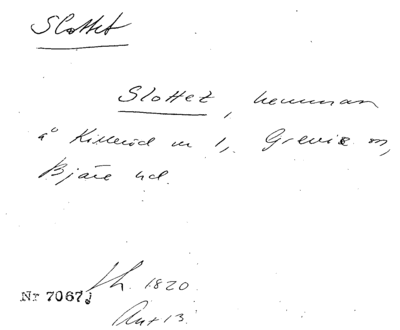 Slottet
Slottet, hemman
å Killeröd nr 1, Grevie sn,
Bjäre hd.
1820
Nr 7067